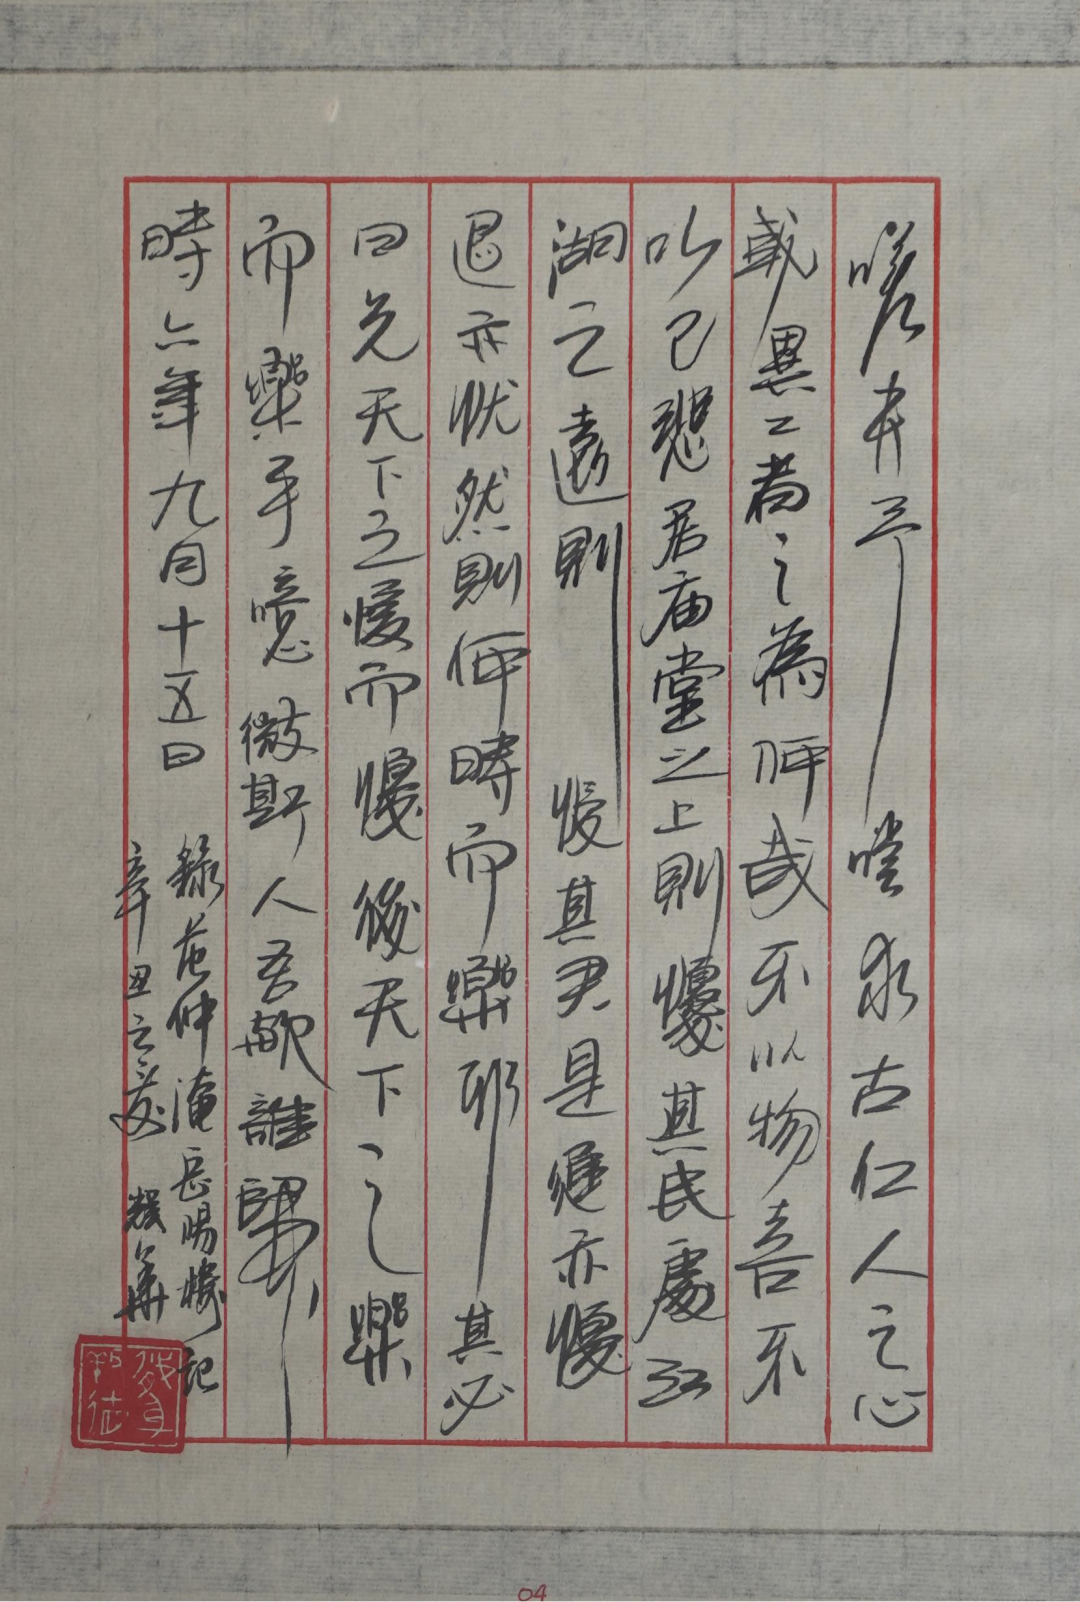 嗟夫予嘗求古仁人之心
或異二者之為何哉不以物喜不
以己悲居庙堂之上則懮其民處江
湖之遠則懮其君是進亦懮
退亦忧然則何時而樂耶其必
曰先天下之懮而懮後天下之樂
而樂乎噫微斯人吾誰歸
時六年九月十五日
錄范仲淹岳陽樓記
辛丑之夏 華
04